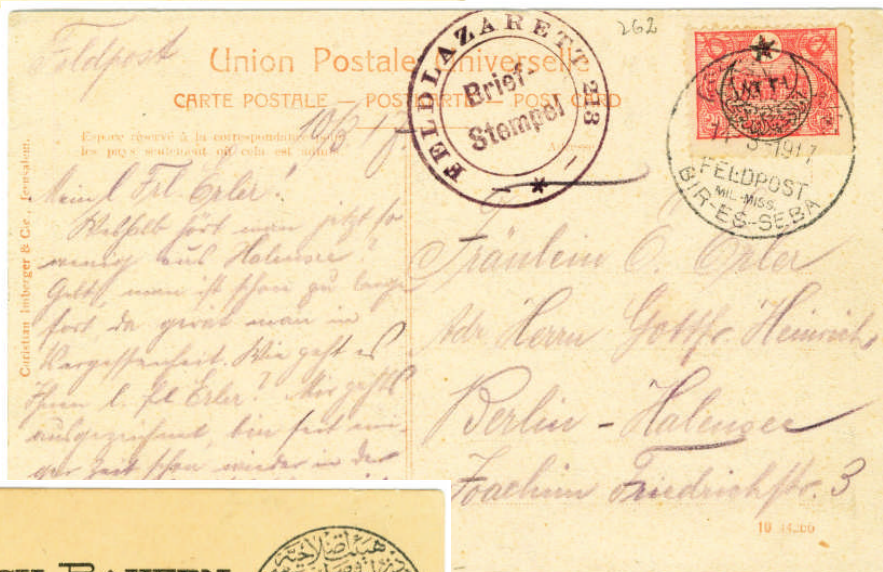 262
Feldpost
Union Postale Universelle
CARTE POSTALE — POSTKARTE — POST CARD
Espace réservé à la correspondance
les pays seulement où cela est admis.
FELDLAZARETT 213
Brief-
Stempel
FELDPOST
MIL-MISS.
BIR-ES-SEBA
Christian Imberger & Cie., Jerusalem.
Mein l. Frl. Erler!
Weshalb hört man jetzt so
wenig aus Halensee?
Gelt, man ist schon zu lange
fort da gerät man in
Vergessenheit. Wie geht es
Ihnen l. Frl. Erler? Mir geht's
ausgezeichnet, bin seit
ger Zeit schon wieder in der
Fräulein Erler
Adr. Herrn Gottfr. Heinrich
Berlin-Halensee
Joachim Friedrichstr. 3